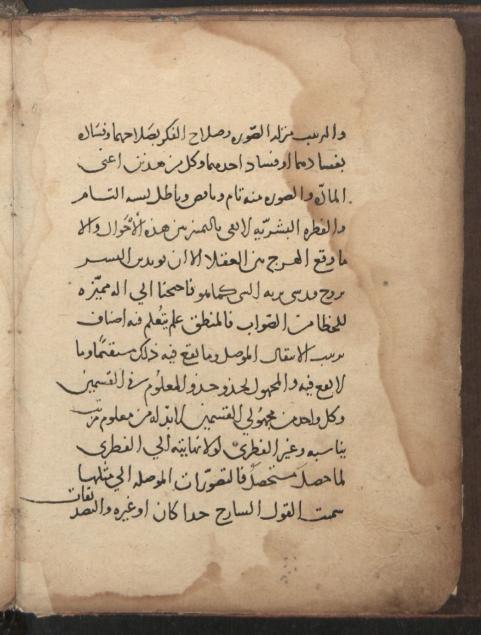 والترتيب منزلة الصّورة وصلاح الفكر بصلاحهما وفساده
بفسادهما او فساد احدهما وكل من هذين اعنى
المادّه والصوره منه تام وناقص وباطل يشبه التام
والفطره البشريّه لا تفى بالتمييز بين هذه الأحوال والا
ما وقع الهرج بين العقلا الا ان تويد بن البشر
بروح قدسى يريه الشى كما هو فاحتجنا الى اله مميّزه
للخطا من الصّواب فالمنطق علم يتعلم فيه اصناف
ترتيب الانتقال الموصل وما يقع فيه ذلك مستقيمًا وما
لا يقع فيه والمجهول يحذو حذو المعلوم فى القسمين
وكل واحد من مجهولي القسمين لابد له من معلوم مرتب
يناسبه وغير الفطرىّ لولا نهايته الي الفطرى
لما حصل مستحصلٌ فالتصوّرات الموصله الى مثلها
سميت القول الشارح حدا كان او غيره والتصديقات